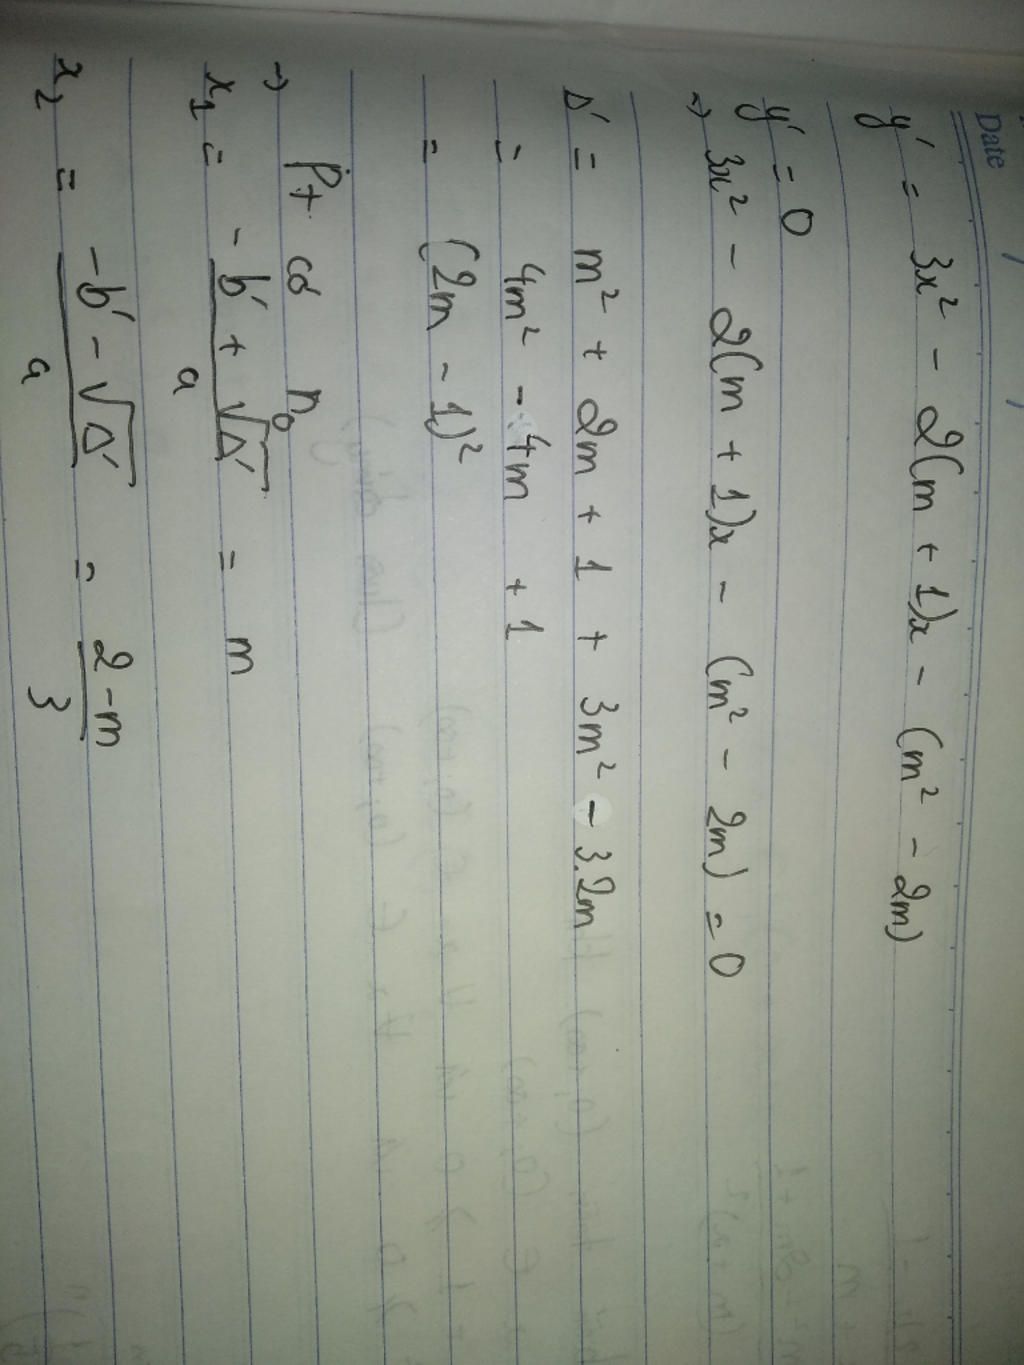 Date
y' = 3x² - 2(m + 1)x - (m² - 2m)
y' = 0
=> 3x² - 2(m + 1)x - (m² - 2m) = 0
Δ' = m² + 2m + 1 + 3m² - 3.2m
= 4m² - 4m + 1
= (2m - 1)²
=> Pt có n₀
x₁ = (-b' + √Δ')/a = m
x₂ = (-b' - √Δ')/a = (2-m)/3